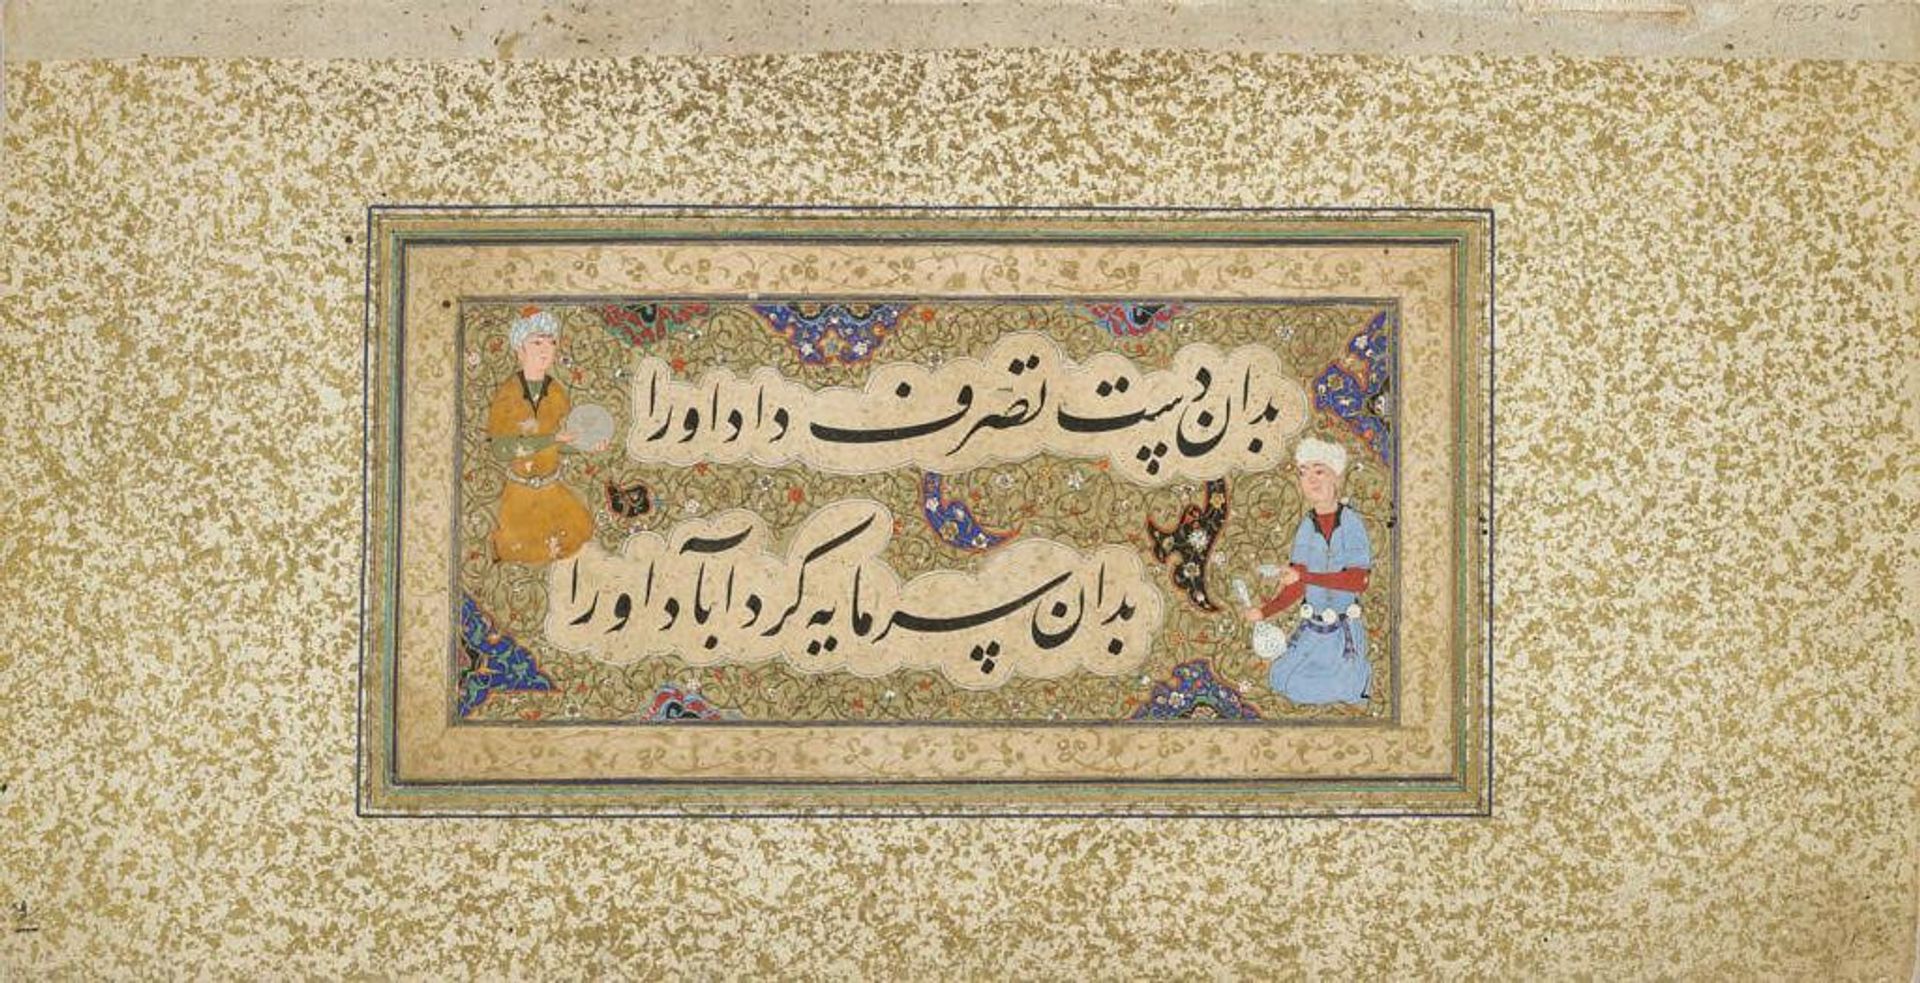 1958.65
بدان دست تصرف داد او را
بدان سرمایه کرد آباد او را